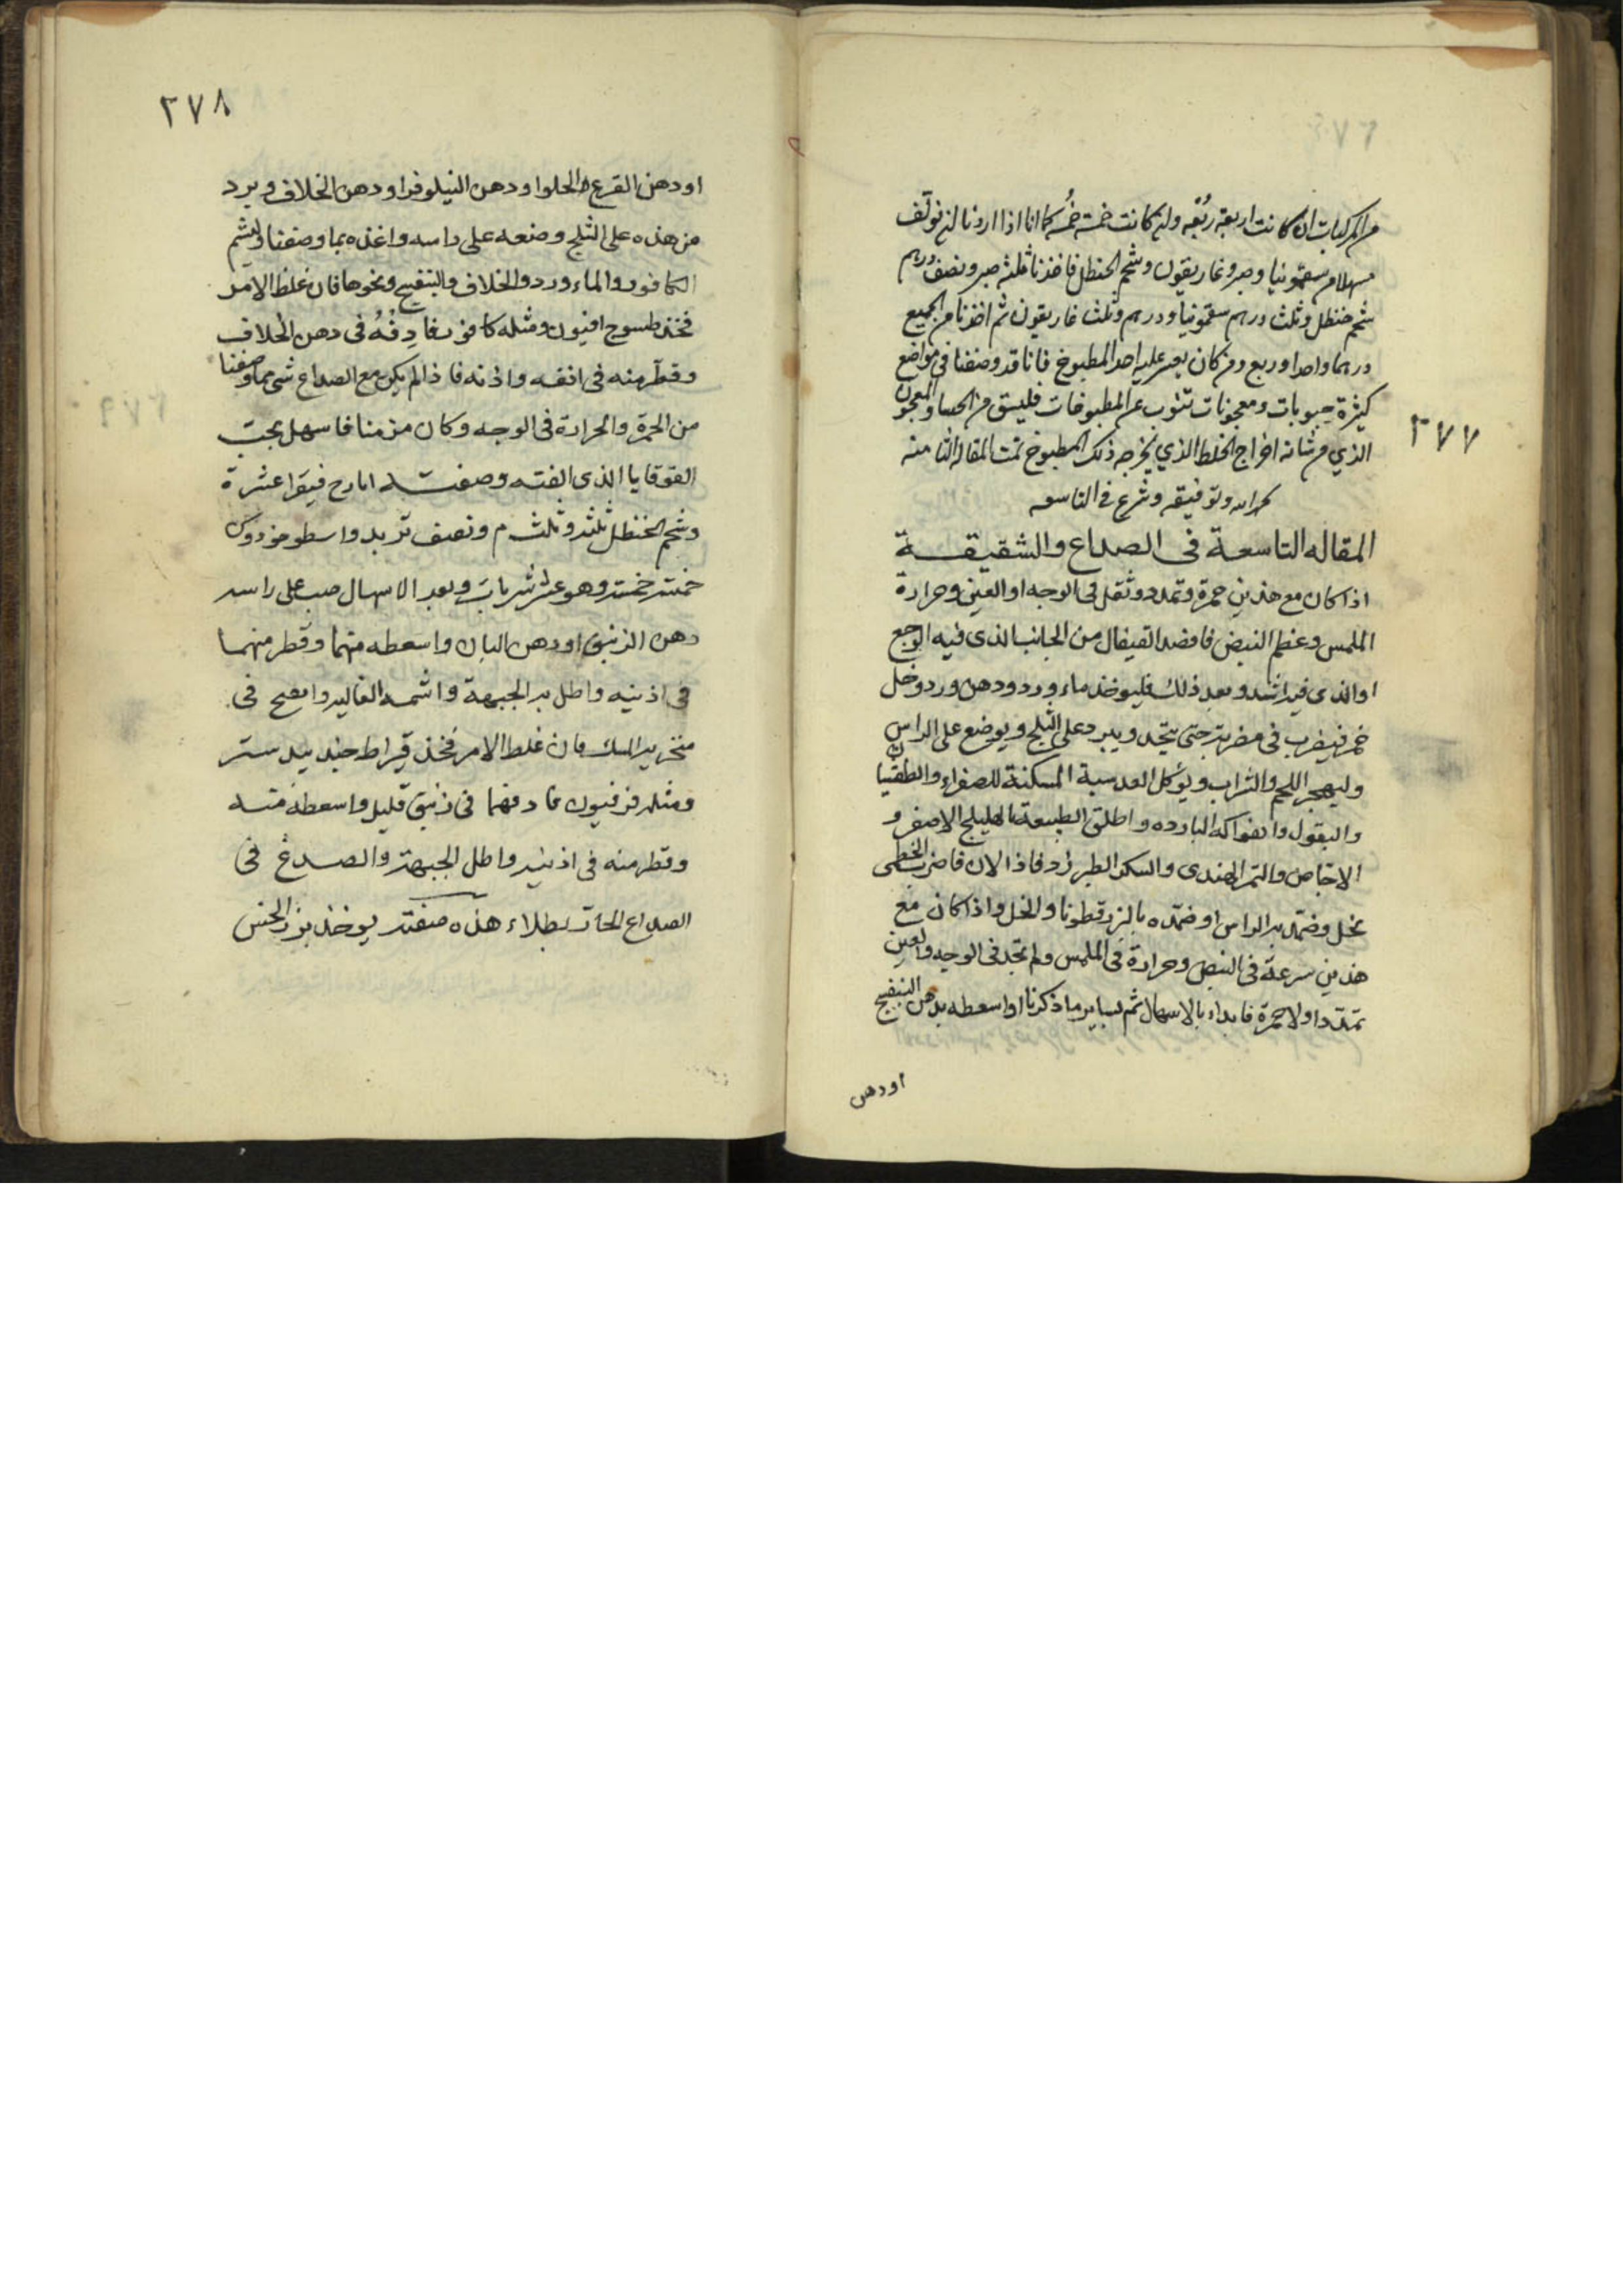 ٢٧٧
من المركبات ان كانت اربعة ربُعَه وان كانت خمسة خُمسُه كما انا اذا اردنا ان نولف
مسهلا من سقمونيا وصبر وغاريقون وشحم الحنظل فاخذنا ثلثه صبر ونصف درهم
شحم حنظل وثلث درهم سقمونيا ودرهم وثلث غاريقون ثم اخذنا من الجميع
درهما واحدا وربع ومن كان يعسر عليه اخذ المطبوخ فانا قد وصفنا في مواضع
كثيرة حبوبات ومعجونات تنوب عن المطبوخات فليسق من الحب او المعجون
الذي من شانه اخراج الخلط الذي يخرجه ذلك المطبوخ تمت المقاله الثامنه
بحمد الله وتوفيقه ونشرع في التاسعه
المقاله التاسعة فى الصداع والشقيقة
اذا كان مع هذين حمرة وتمدد وثقل فى الوجه او العين وحرارة
الملمس وعظم النبض فافصد القيفال من الجانب الذى فيه الوجع
او الذى فيه اشد وبعد ذلك فليوخذ ماء ورد ودهن ورد وخل
خمر فيضرب فى مضربة حتى يتحد ويبرد على الثلج ويوضع على الراس
وليهجر اللحم والشراب ويوكل العدسية المسكنة للصفراء والطفيا
والبقول والفواكه البارده واطلق الطبيعة بالهليلج الاصفر و
الاجاص والتمر الهندى والسكر الطبرزد فاذا الان فاضرب الخطمى
بخل وضمد به الراس او ضمده بالبزرقطونا والخل واذا كان مع
هذين سرعة فى النبض وحرارة فى الملمس ولم تجد فى الوجه والعين
تمددا ولا حمرة فابداء بالاسهال ثم بساير ما ذكرنا واسعطه بدهن البنفسج
او دهن
٢٧٨
او دهن القرع الحلو او دهن النيلوفر او دهن الخلاف ويرد
من هذه على الثلج وضعه على راسه واغذه بما وصفنا وليشم
الكافور والماء ورد والخلاف والبنفسج ونحوها فان غلظ الامر
فخذ طسوج افيون ومثله كافور فادِفْهُ فى دهن الخلاف
وقطر منه فى انفه واذنه فاذا لم يكن مع الصداع شى مما وصفنا
من الحمرة والحرارة فى الوجه وكان مزمنا فاسهل بحب
القوقايا الذى الفته وصفته ايارج فيقرا عشرة
وشحم الحنظل ثلثه وثلث م ونصف تربد واسطوخودوس
خمسة خمسة وهو عشر شربات وبعد الاسهال صب على راسه
دهن الزنبق او دهن البان واسعطه منهما وقطر منهما
فى اذنيه واطل به الجبهة واشمه الغاليه وانفخ فى
منخريه المسك فان غلظ الامر فخذ قيراط جندبيدستر
ومثله فرفيون فادفهما فى زنبق قليل واسعطه منه
وقطر منه فى اذنيه واطل الجبهة والصدغ فى
الصداع الحار بطلاء هذه صفته يوخذ بزر الخس